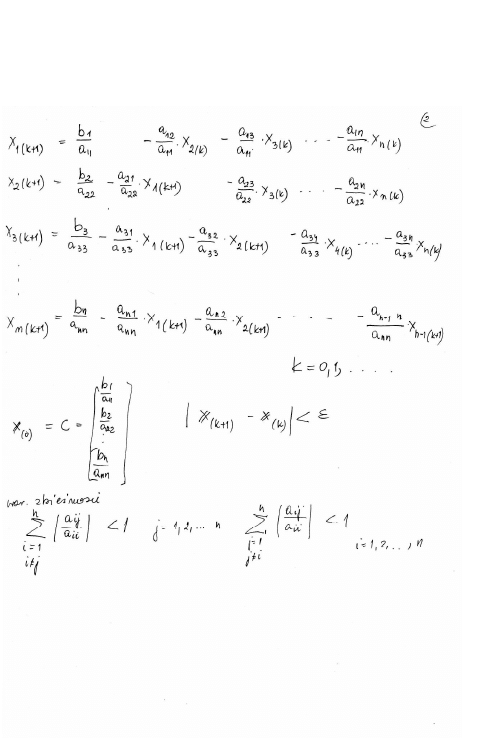 ②
x_{1(k+1)} = \frac{b_1}{a_{11}} - \frac{a_{12}}{a_{11}} \cdot x_{2(k)} - \frac{a_{13}}{a_{11}} \cdot x_{3(k)} \ldots - \frac{a_{1n}}{a_{11}} x_{n(k)}
x_{2(k+1)} = \frac{b_2}{a_{22}} - \frac{a_{21}}{a_{22}} \cdot x_{1(k+1)} - \frac{a_{23}}{a_{22}} \cdot x_{3(k)} \ldots - \frac{a_{2n}}{a_{22}} \cdot x_{n(k)}
x_{3(k+1)} = \frac{b_3}{a_{33}} - \frac{a_{31}}{a_{33}} \cdot x_{1(k+1)} - \frac{a_{32}}{a_{33}} \cdot x_{2(k+1)} - \frac{a_{34}}{a_{33}} \cdot x_{4(k)} \ldots - \frac{a_{3n}}{a_{33}} x_{n(k)}
⋮
x_{n(k+1)} = \frac{b_n}{a_{nn}} - \frac{a_{n1}}{a_{nn}} \cdot x_{1(k+1)} - \frac{a_{n2}}{a_{nn}} \cdot x_{2(k+1)} - \ldots - \frac{a_{n-1 n}}{a_{nn}} x_{n-1(k+1)}
k = 0,1, ....
x_{(0)} = C = \begin{bmatrix} \frac{b_1}{a_{11}} \\ \frac{b_2}{a_{22}} \\ \vdots \\ \frac{b_n}{a_{nn}} \end{bmatrix} | x_{(k+1)} - x_{(k)} | < ε
war. zbieżności
\sum_{i=1, i≠j}^{n} \left| \frac{a_{ij}}{a_{ii}} \right| < 1 j = 1,2,... n \sum_{j=1, j≠i}^{n} \left| \frac{a_{ij}}{a_{ii}} \right| < 1 i = 1,2,..., n